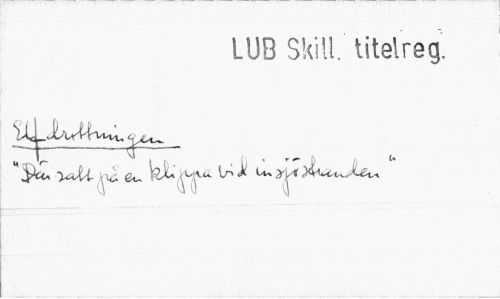 LUB Skill. titelreg.
Elfdrottningen
"Där satt på en klippa vid insjöstranden"